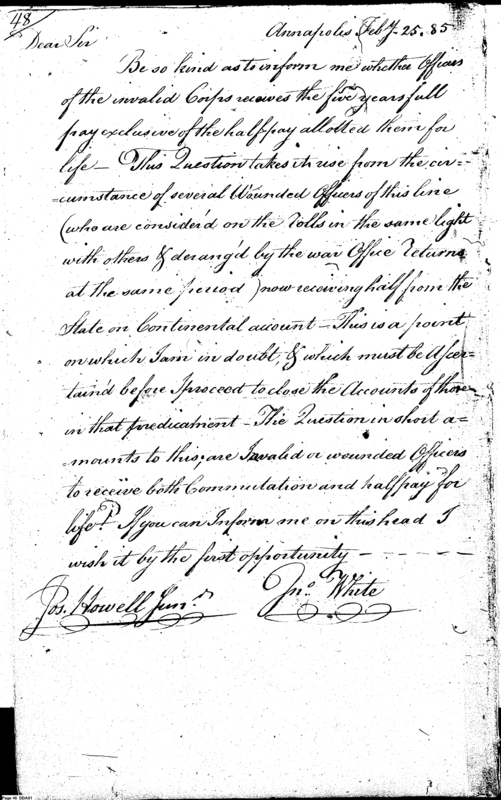 48
Annapolis Feby. 25. 85
Dear Sir
Be so kind as to inform me whether Officers
of the invalid Corps receives the five years full
pay exclusive of the half pay allotted them for
life – This Question takes its use from the cir=
=cumstance of several Wounded Officers of this line
(who are consider'd on the Rolls in the same light
with others & derang'd by the war Office Returns
at the same period) now receiving half from the
State on Continental account – This is a point
on which I am in doubt, & which must be Ascer=
tain'd before I proceed to close the Accounts of those
in that predicament – The Question in short a=
mounts to this, are Invalid or wounded Officers
to receive both Commutation and half pay for
life? If you can Inform me on this head I
wish it by the first opportunity – – – –
Jno. White
Jos. Howell Junr.
Page 48 DDA01